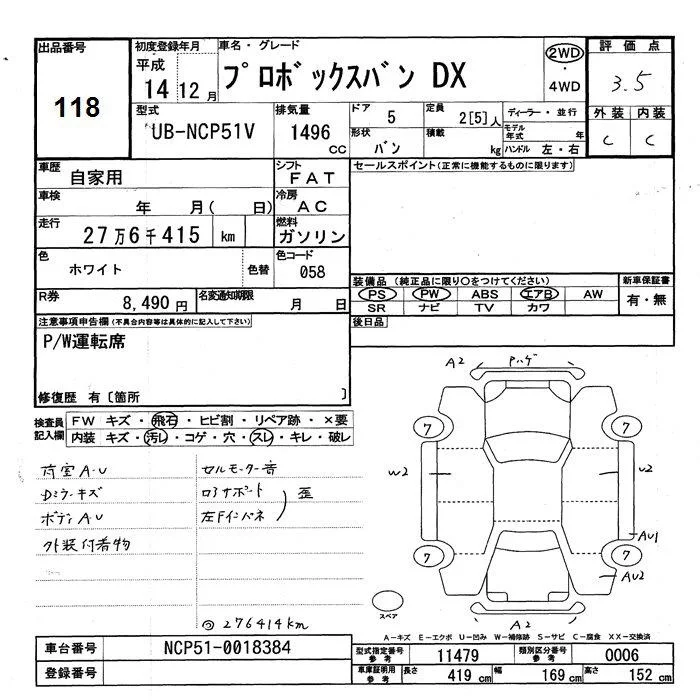 出品番号
118
初度登録年月
平成
14 12 月
車名・グレード
プロボックスバン DX
2WD
・
4WD
評 価 点
3.5
型式
UB-NCP51V
排気量
1496 CC
ドア
5
定員
2[5] 人
ディーラー・並行
外装 内装
C C
形状
バン
積載
kg
モデル年式 年
ハンドル 左・右
車歴
自家用
シフト
FAT
セールスポイント(正常に機能するものに限ります)
車検
年 月( 日)
冷房
AC
走行
27万6千415 km
燃料
ガソリン
色
ホワイト
色替
色コード
058
装備品 (純正品に限り○をつけてください)
新車保証書
PS PW ABS エアB AW
有・無
SR ナビ TV カワ
R券
8,490 円
名変通知期限
月 日
後日品
注意事項申告欄(不具合内容等は具体的に記入して下さい)
P/W運転席
修復歴 有 [箇所 ]
検査員記入欄
FW キズ・飛石・ヒビ割・リペア跡・×要
内装 キズ・汚レ・コゲ・穴・スレ・キレ・破レ
荷室A・U
Dミラーキズ
ボディA・U
外装付着物
セルモーター音
ロアサポート
左Fインパネ
歪
276414km
A2 Pハゲ
7 7
W2 U2
AU1
7 7
AU2
スペア
A2
A−キズ E−エクボ U−凹み W−補修跡 S−サビ C−腐食 XX−交換済
車台番号
NCP51-0018384
型式指定番号 参考
11479
類別区分番号 参考
0006
登録番号
車庫証明用 参考
長さ
419 cm
幅
169 cm
高さ
152 cm